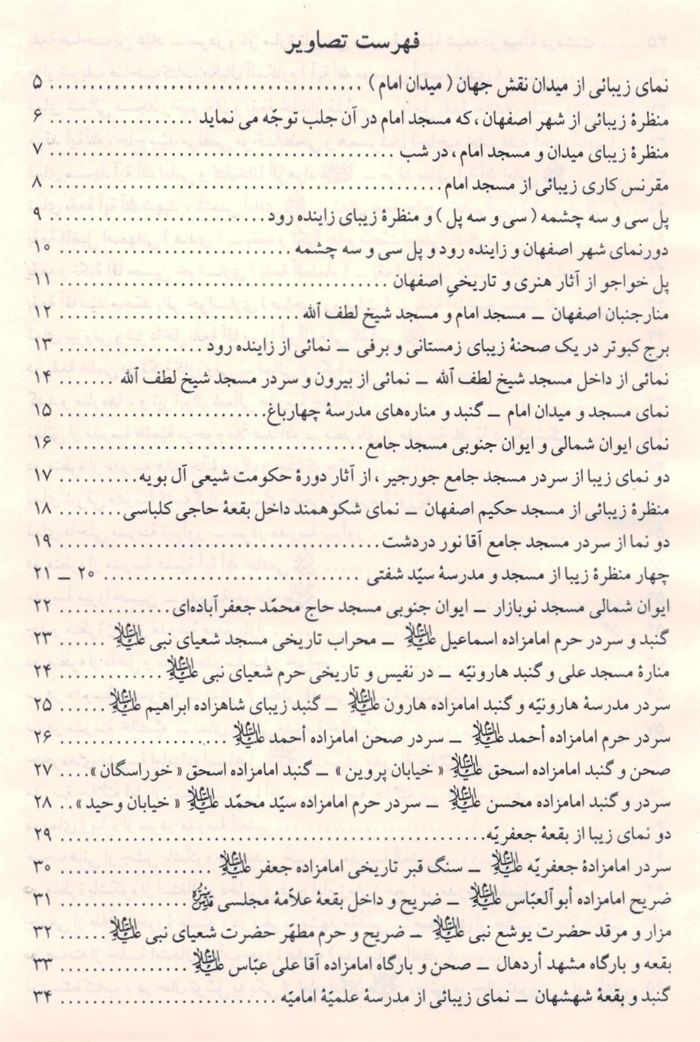 فهرست تصاویر
نمای زیبائی از میدان نقش جهان ( میدان امام ) ........................................ ۵
منظرهٔ زیبائی از شهر اصفهان ، که مسجد امام در آن جلب توجّه می نماید ................ ۶
منظرهٔ زیبای میدان و مسجد امام ، در شب ............................................ ۷
مقرنس کاری زیبائی از مسجد امام .................................................. ۸
پل سی و سه چشمه ( سی و سه پل ) و منظرهٔ زیبای زاینده رود ........................ ۹
دورنمای شهر اصفهان و زاینده رود و پل سی و سه چشمه .............................. ۱۰
پل خواجو از آثار هنری و تاریخیِ اصفهان .......................................... ۱۱
منارجنبان اصفهان ــ مسجد امام و مسجد شیخ لطف اللّه .............................. ۱۲
برج کبوتر در یک صحنهٔ زیبای زمستانی و برفی ــ نمائی از زاینده رود .................. ۱۳
نمائی از داخل مسجد شیخ لطف اللّه ــ نمائی از بیرون و سردر مسجد شیخ لطف اللّه ....... ۱۴
نمای مسجد و میدان امام ــ گنبد و مناره‌های مدرسهٔ چهارباغ .......................... ۱۵
نمای ایوان شمالی و ایوان جنوبی مسجد جامع ........................................ ۱۶
دو نمای زیبا از سردر مسجد جامع جورجیر ، از آثار دورهٔ حکومت شیعی آل بویه .......... ۱۷
منظرهٔ زیبائی از مسجد حکیم اصفهان ــ نمای شکوهمند داخل بقعهٔ حاجی کلباسی ........ ۱۸
دو نما از سردر مسجد جامع آقا نور دردشت .......................................... ۱۹
چهار منظرهٔ زیبا از مسجد و مدرسهٔ سیّد شفتی ................................ ۲۰ ــ ۲۱
ایوان شمالی مسجد نوبازار ــ ایوان جنوبی مسجد حاج محمّد جعفرآباده‌ای ................ ۲۲
گنبد و سردر حرم امامزاده اسماعیل علیه‌السلام ــ محراب تاریخی مسجد شعیای نبی علیه‌السلام ...... ۲۳
منارهٔ مسجد علی و گنبد هارونیّه ــ در نفیس و تاریخی حرم شعیای نبی علیه‌السلام ............ ۲۴
سردر مدرسهٔ هارونیّه و گنبد امامزاده هارون علیه‌السلام ــ گنبد زیبای شاهزاده ابراهیم علیه‌السلام ...... ۲۵
سردر حرم امامزاده احمد علیه‌السلام ــ سردر صحن امامزاده احمد علیه‌السلام .................. ۲۶
صحن و گنبد امامزاده اسحق علیه‌السلام « خیابان پروین » ــ گنبد امامزاده اسحق « خوراسگان » .... ۲۷
سردر و گنبد امامزاده محسن علیه‌السلام ــ سردر حرم امامزاده سیّد محمّد علیه‌السلام « خیابان وحید » .. ۲۸
دو نمای زیبا از بقعهٔ جعفریّه .................................................. ۲۹
سردر امامزادهٔ جعفریّه علیه‌السلام ــ سنگ قبر تاریخی امامزاده جعفر علیه‌السلام .................. ۳۰
ضریح امامزاده أبوالعبّاس علیه‌السلام ــ ضریح و داخل بقعهٔ علاّمهٔ مجلسی قدس‌سره .................. ۳۱
مزار و مرقد حضرت یوشع نبی علیه‌السلام ــ ضریح و حرم مطهّر حضرت شعیای نبی علیه‌السلام ...... ۳۲
بقعه و بارگاه مشهد أردهال ــ صحن و بارگاه امامزاده آقا علی عبّاس علیه‌السلام ................ ۳۳
گنبد و بقعهٔ شهشهان ــ نمای زیبائی از مدرسهٔ علمیّهٔ امامیّه .......................... ۳۴